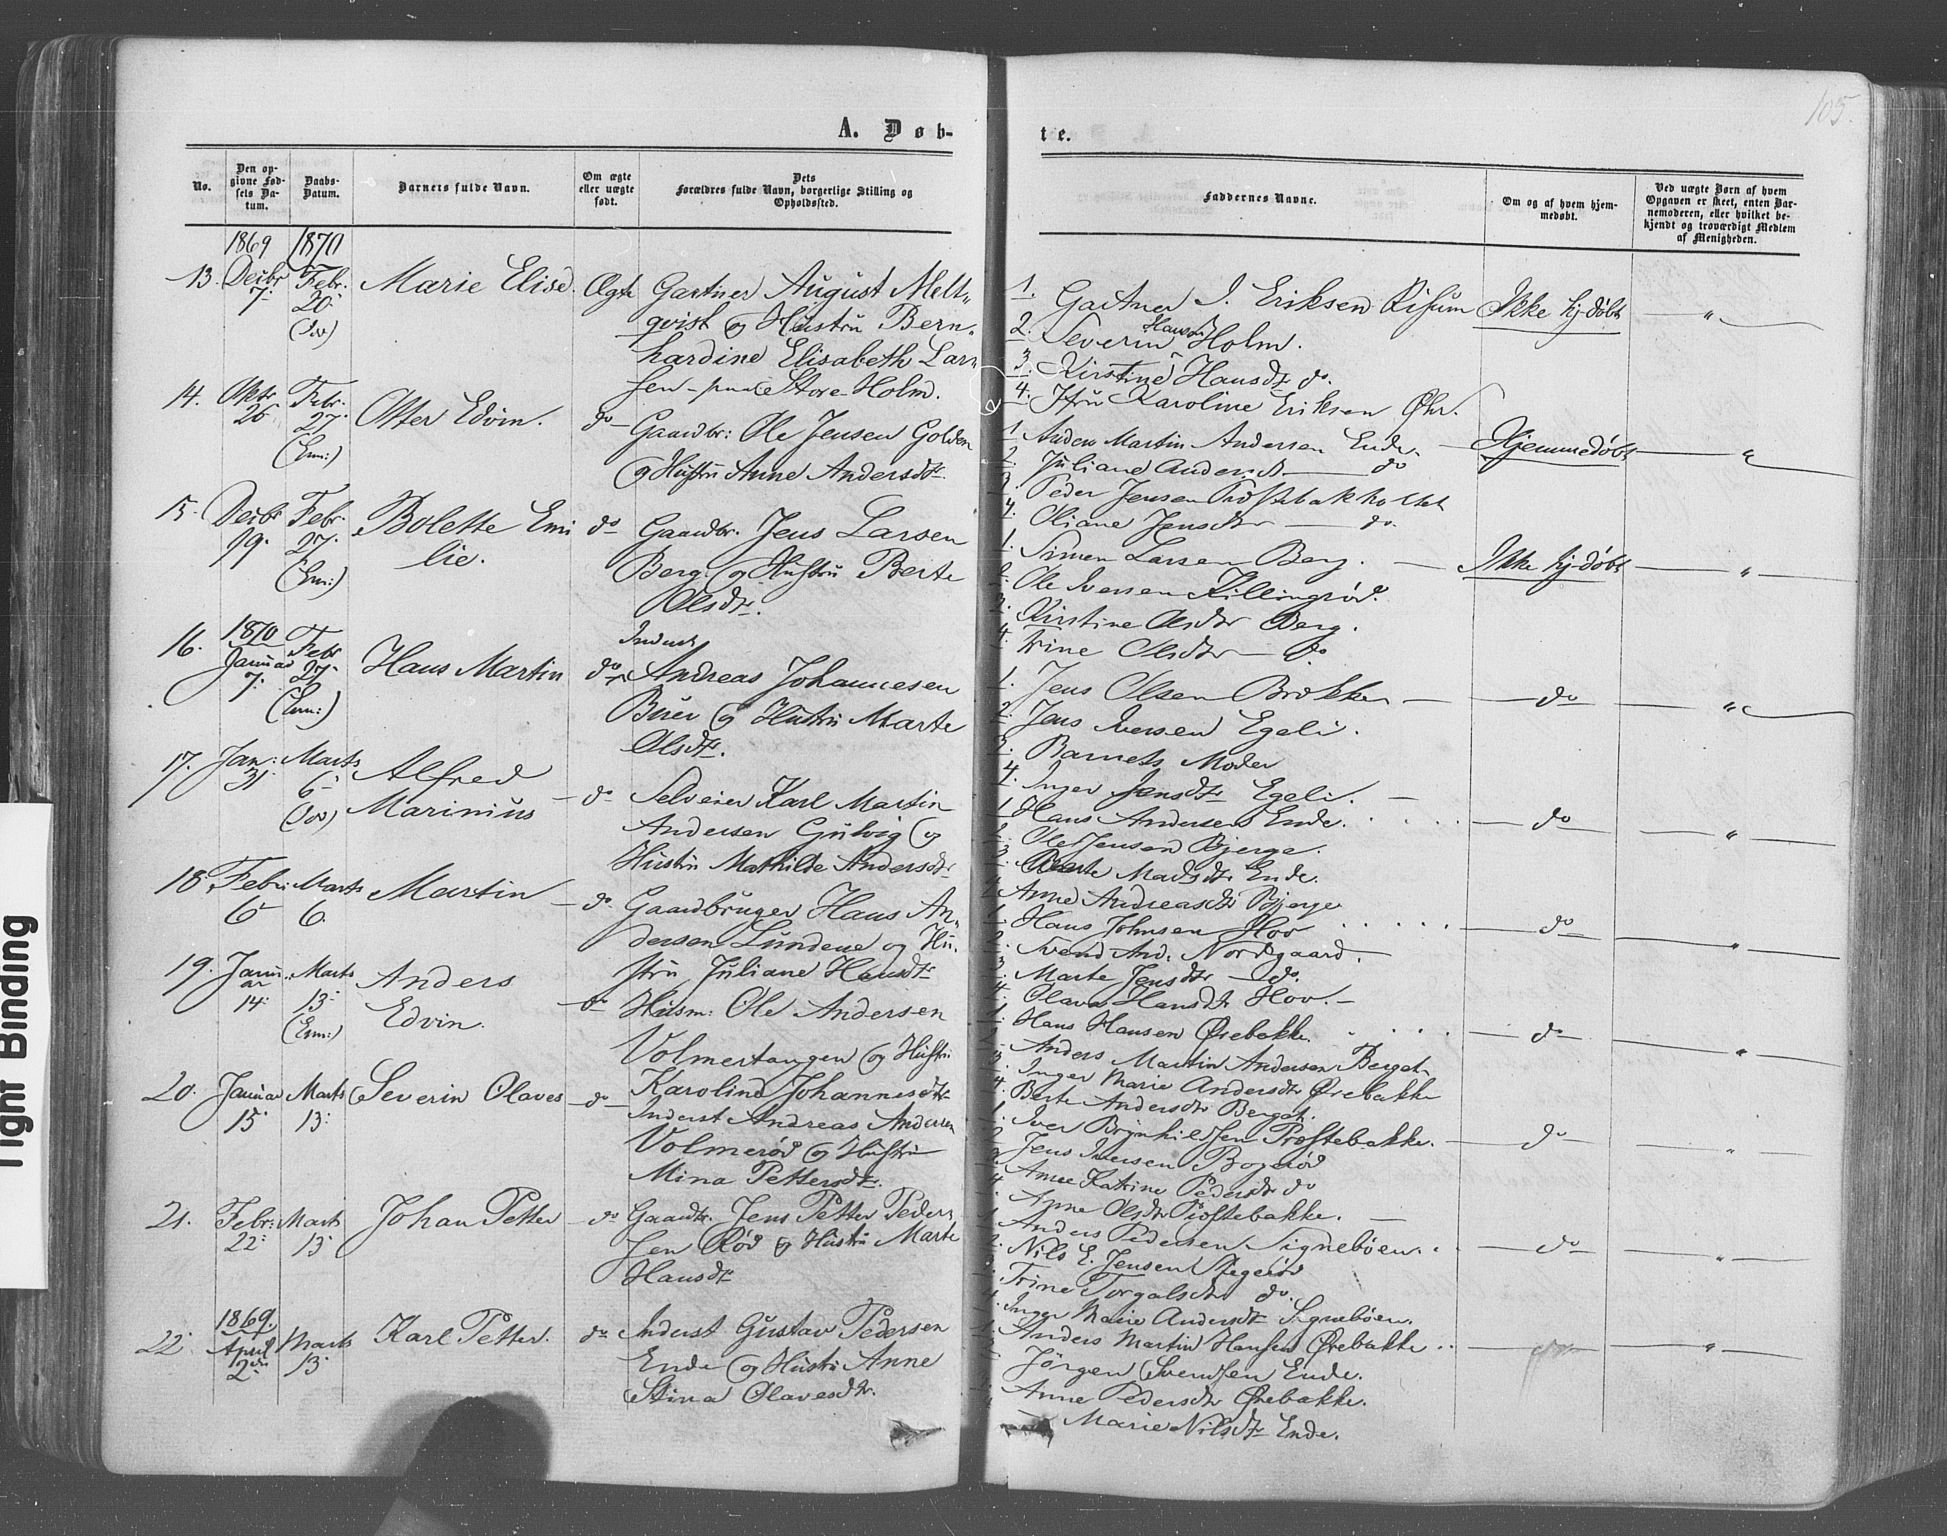 105.
A. Døb-
te.
No.
Den op-
givne Fød-
sels Da-
tum.
Daabs-
Datum.
Barnets fulde Navn.
Om ægte
eller uægte
født.
Dets
Forældres fulde Navn, borgerlige Stilling og
Opholdssted.
Faddernes Navne.
Om og af hvem hjem-
medøbt.
Ved uægte Børn af hvem
Opgaven er skeet, enten Bar-
nemoderen, eller hvilket be-
kjendt og troværdigt Medlem
af Menigheden.
1869 1870
13. Decbr 7. Febr. 20 Marie Elise. Ægte Gartner August Melt-
qvist og Hustru Bern-
hardine Elisabeth Lar-
sen - Store Holm.
1. Gartner J. Eriksen Risum
2. Severin Hansen Holm.
3. Kirstine Hansdt. do.
4. Fru Karoline Eriksen Øhr.
Ikke hj-døbt "
14. Oktr 26 Febr. 27. (Enn:) Otter Edvin. do Gaardbr: Ole Jensen Golden
og Hustru Anne Andersdtr.
1. Anders Martin Andersen Ende.
2. Juliane Andersdtr do
3. Peder Jensen Prostebakholtet
4. Oliane Jensdtr do.
Hjemmedøbt "
15. Decbr 19. Febr. 27. (Enn:) Bolette Emi
lie. do Gaardbr. Jens Larsen
Berg. og Hustru Berte
Olsdtr.
1. Simen Larsen Berg.
2. Ole Iversen Killingrød.
3. Kirstine Olsdtr Berg.
4. Trine Olsdtr do
Ikke hj-døbt "
1870
16. Januar 7. Febr 27. (Enn:) Hans Martin do Inderst
Andreas Johannesen
Buer og Hustru Marte
Olsdtr.
1. Jens Olsen Brekke
2. Jens Iversen Egeli.
3. Barnets Moder
4. Inger Jensdtr Egeli.
do "
17. Jan: 31. Marts 6 Alfred
Marinius do Selveier Karl Martin
Andersen Gulvig og
Hustru Mathilde Andersdtr
1. Hans Andersen Ende.
2. Ole Jensen Bjerge.
3. Berte Madsdtr Ende.
4. Anne Andreasdtr Bjerge
do "
18. Febr: 6 Marts 6. Martin do. Gaardbruger Hans An-
dersen Lundene og Hu-
stru Juliane Hansdtr
1. Hans Johnsen Hov
2. Svend And. Nordgaard.
3. Marte Jensdtr do.
4. Olava Hansdtr Hov.
do "
19. Janu
ar
14. Marts 13. (Enn:) Anders
Edvin. do Husm: Ole Andersen
Volmertangen og Hustru
Karoline Johannesdtr
1. Hans Hansen Ørebakke.
2. Anders Martin Andersen Berget
3. Inger Marie Andersdtr Ørebakke
4. Berte Andersdtr Berget.
do "
20. Januar 15 Marts 13. Severin Olaves do Inderst Andreas Andersen
Volmerød og Hustru
Mina Pettersdtr.
1. Iver Brynhilssen Prostebakke.
2. Jens Iversen Bogerød
3. Anne Katrine Pedersdtr do
4. Anne Olsdtr Prostebakke.
do "
21. Febr: 22. Marts 13. Johan Petter do Gaardbr. Jens Petter Peder-
sen Rød og Hustru Marte
Hansdtr
1. Anders Pedersen Signebøen.
2. Nils E. Jensen
3. Trine Torgalsdtr do.
4. Inger Marie Andersdtr Signebøen.
do "
1869.
22. April 2 Marts 13 Karl Petter. do Inderst Gustav Pedersen
Ende og Hustru Anne
Stina Olavesdtr.
1. Anders Martin Hansen Ørebakke
Jørgen Svendsen Ende.
Anne Pedersdtr Ørebakke.
Marie Nilsdtr Ende.
"
Tight Binding